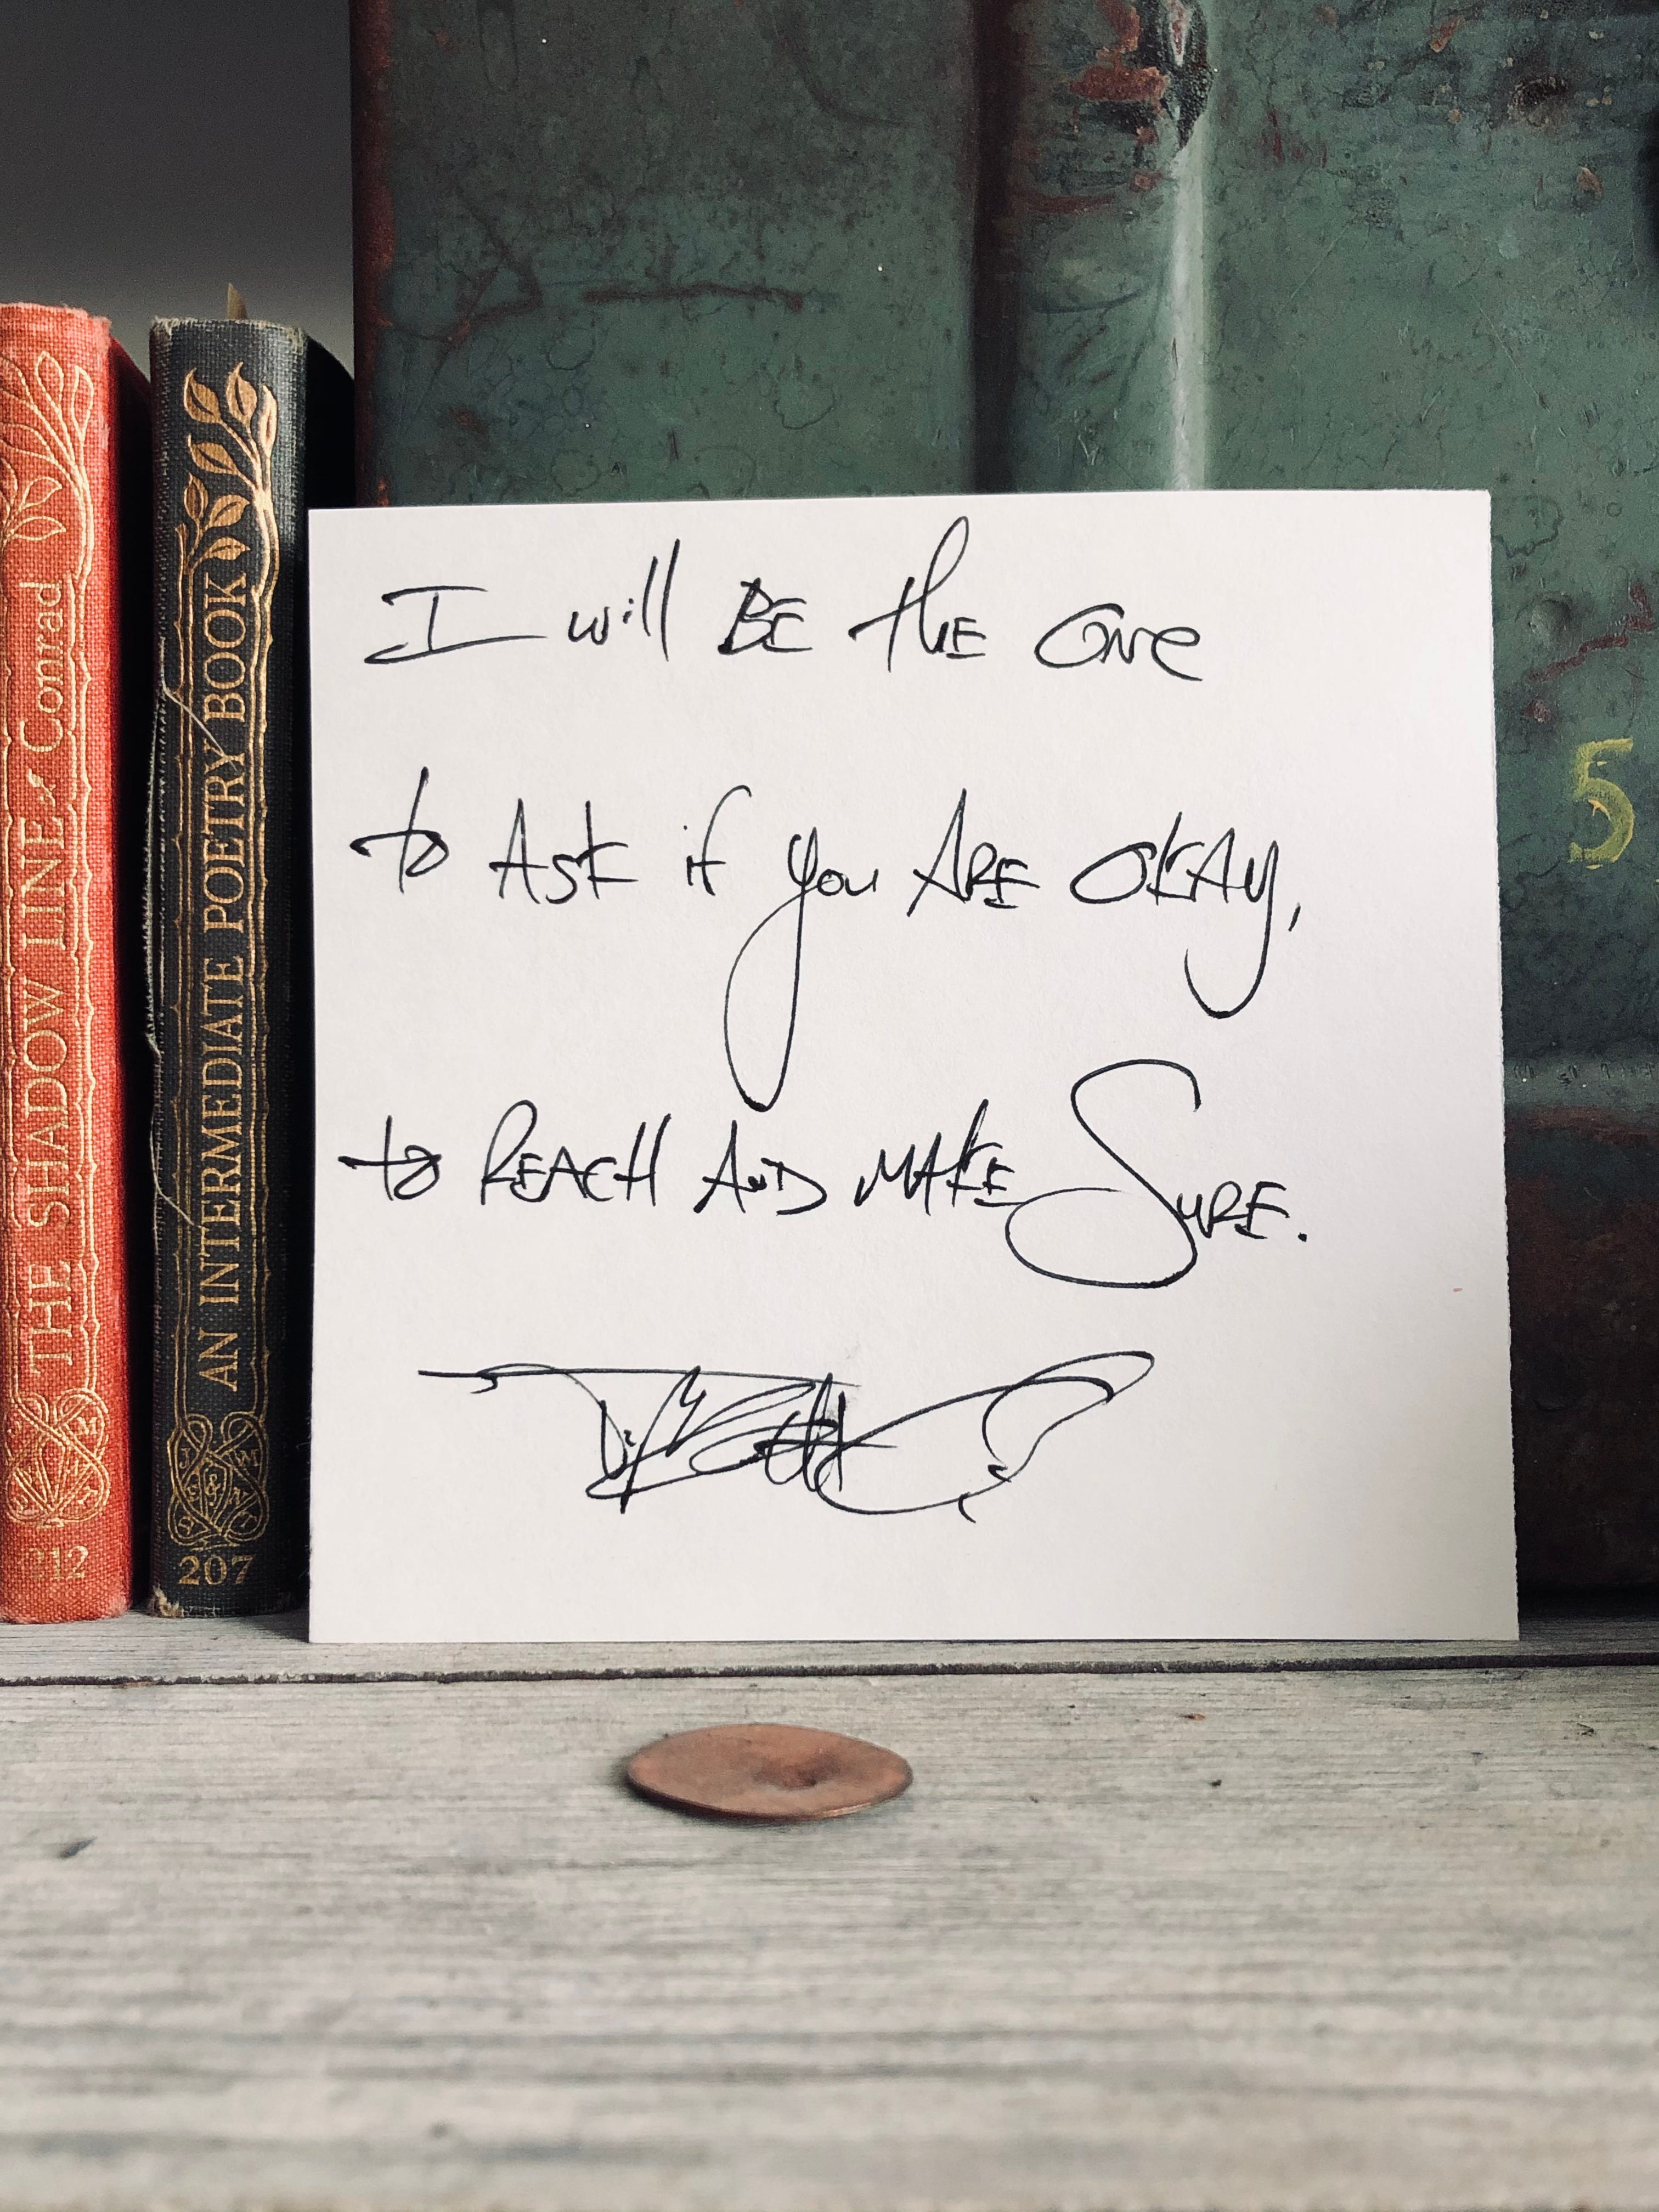 THE SHADOW LINE Conrad
212
AN INTERMEDIATE POETRY BOOK
207
I will BE the One
to Ask if you ARE OKAY,
to REACH AND MAKE SURE.
5